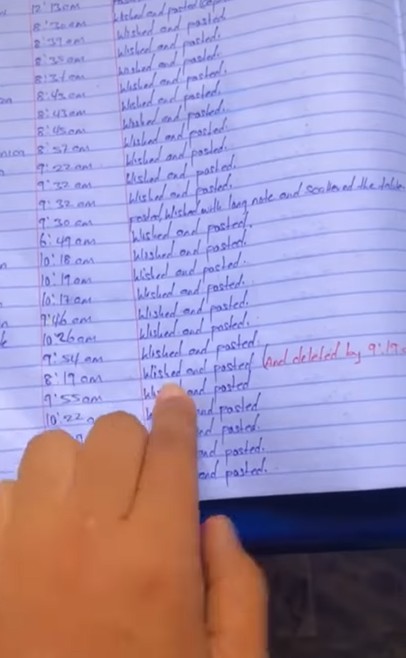 12:13am Wished and posted
8:30am Wished and posted
8:39am Wished and posted.
8:35am Wished and posted.
8:31am Wished and posted.
8:45am Wished and posted.
8:43am Wished and posted.
8:45am Wished and posted.
8:57am Wished and posted.
9:22am Wished and posted.
9:32am Wished and posted.
9:32am Wished and posted.
9:30am posted, Wished with long note and the
6:49am Wished and posted.
10:18am Wished and posted.
10:19am Wished and posted.
10:17am Wished and posted.
9:46am Wished and posted.
10:26am Wished and posted.
9:54am Wished and posted.
8:19am Wished and posted (and deleted by 9:19.
9:55am and posted
10:22 and posted
and posted.
and posted.
and posted.